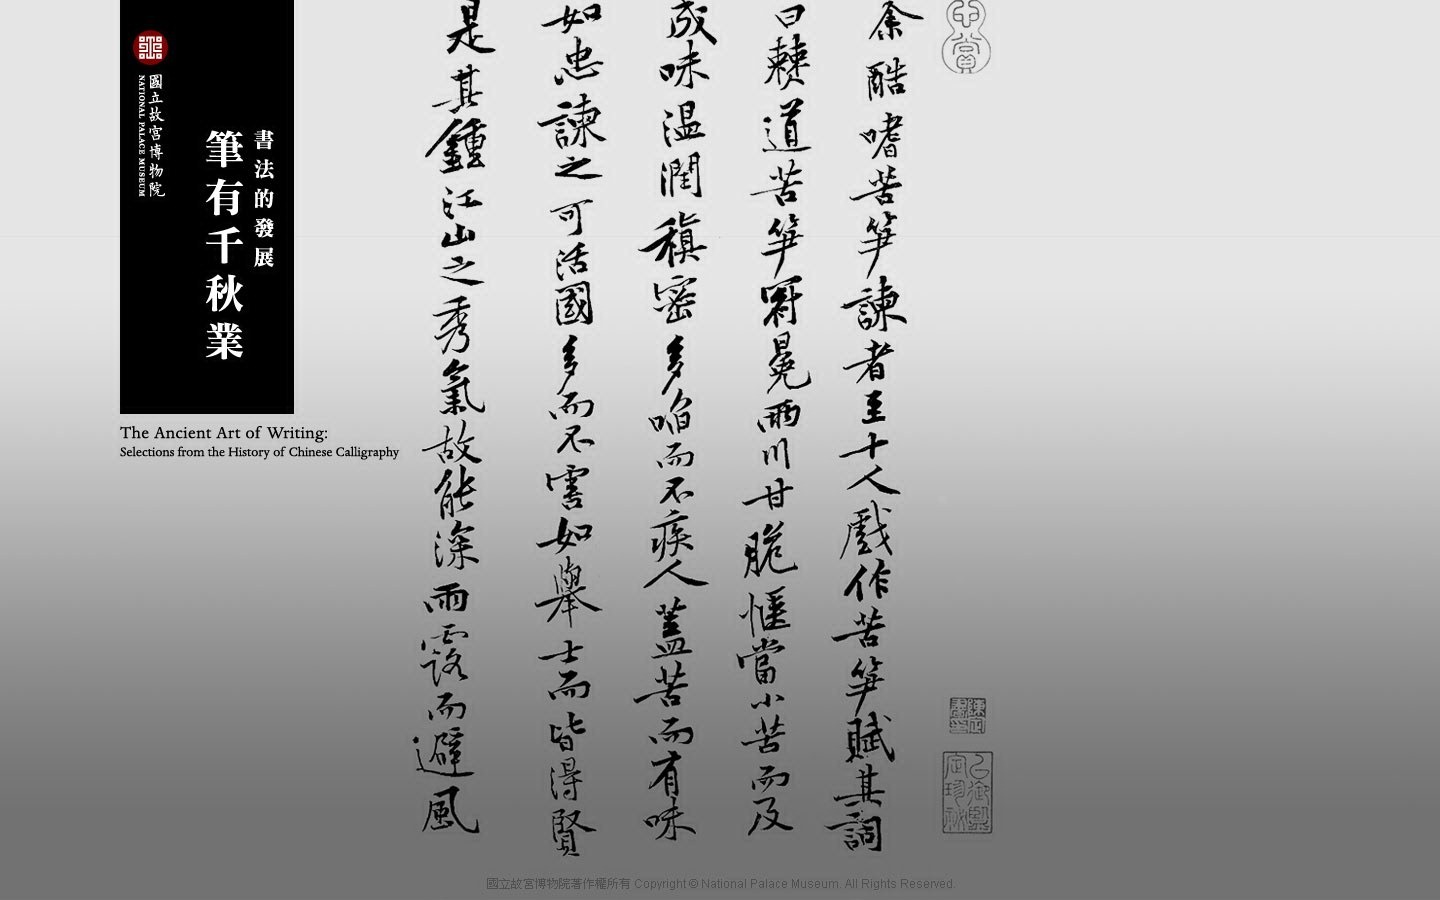 國立故宮博物院
NATIONAL PALACE MUSEUM
書法的發展
筆有千秋業
The Ancient Art of Writing:
Selections from the History of Chinese Calligraphy
余酷嗜苦笋諫者至十人戲作苦笋賦其詞
曰僰道苦笋冠冕兩川甘脆愜當小苦而及
成味温潤稹密多啗而不疾人蓋苦而有味
如忠諫之可活國多而不害如舉士而皆得賢
是其鍾江山之秀氣故能深雨露而避風
國立故宮博物院著作權所有 Copyright © National Palace Museum. All Rights Reserved.